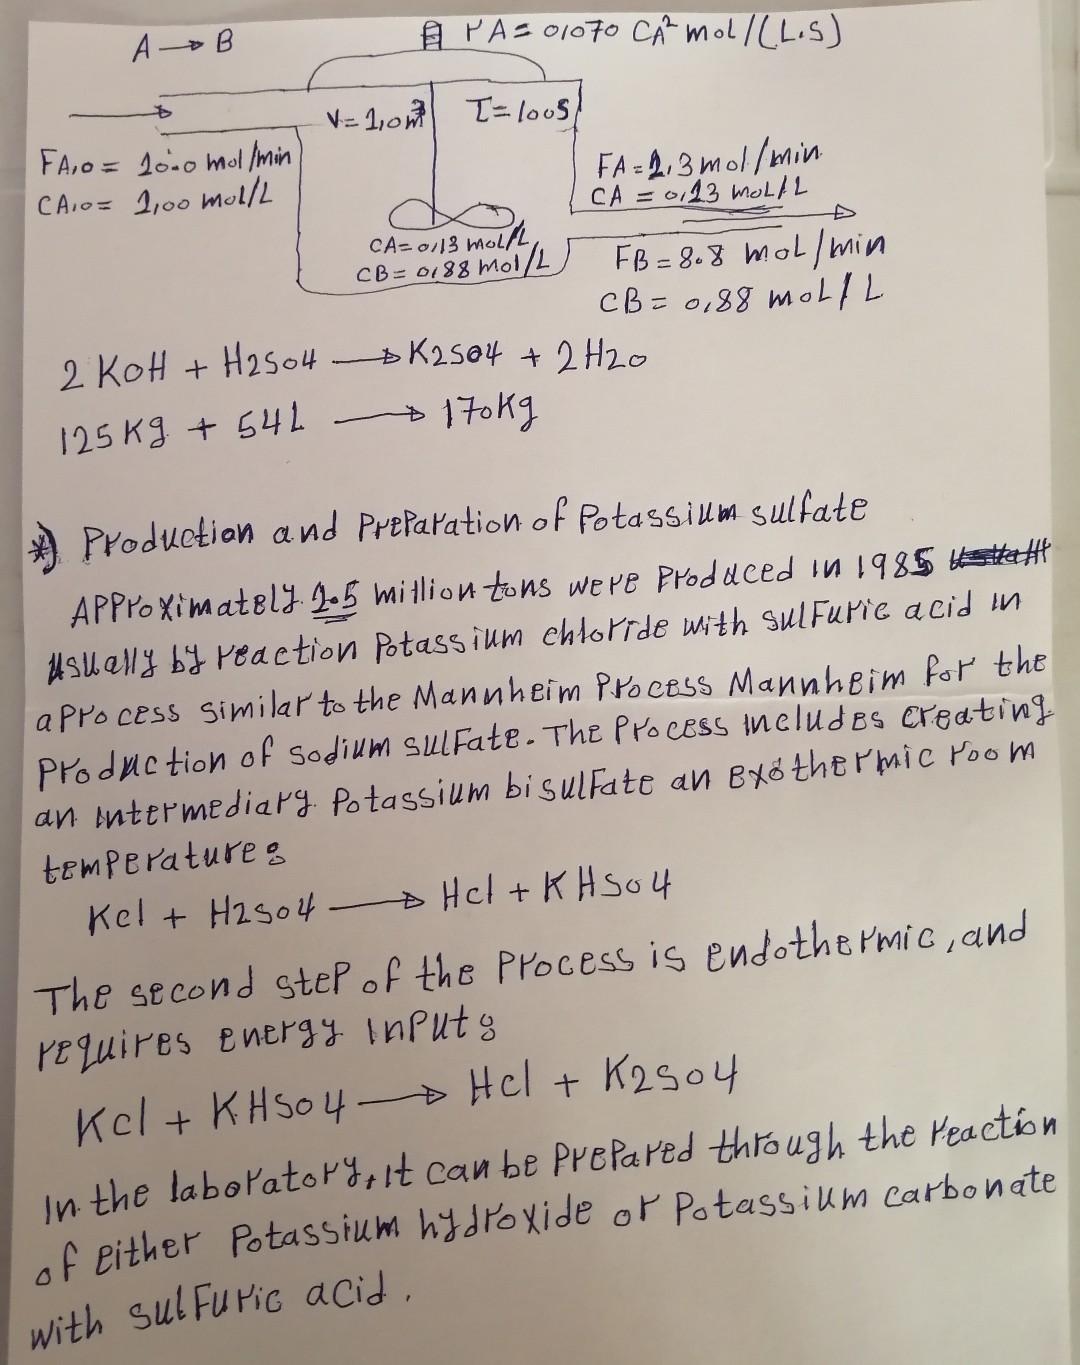 A → B
rA = 0,070 CA² mol/(L.S)
V = 1,0 m³
τ = 100S
FA,0 = 10.0 mol/min
CA,0 = 1,00 mol/L
FA = 1,3 mol/min
CA = 0,13 moL/L
CA = 0,13 moL/L
CB = 0,88 mol/L
FB = 8.8 moL/min
CB = 0,88 moL/L
2 KOH + H2SO4 → K2SO4 + 2 H2O
125 Kg + 54L → 170Kg
*) Production and Preparation of Potassium sulfate
Approximately 1.5 million tons were Produced in 1985
usually by reaction Potassium chloride with sulfuric acid in
a process similar to the Mannheim Process Mannheim for the
Production of sodium sulfate. The Process includes creating
an intermediary Potassium bisulfate an exothermic room
temperature:
Kcl + H2SO4 → Hcl + KHSO4
The second step of the Process is endothermic, and
requires energy input:
Kcl + KHSO4 → Hcl + K2SO4
In the laboratory, it can be Prepared through the reaction
of either Potassium hydroxide or Potassium carbonate
with sulfuric acid.